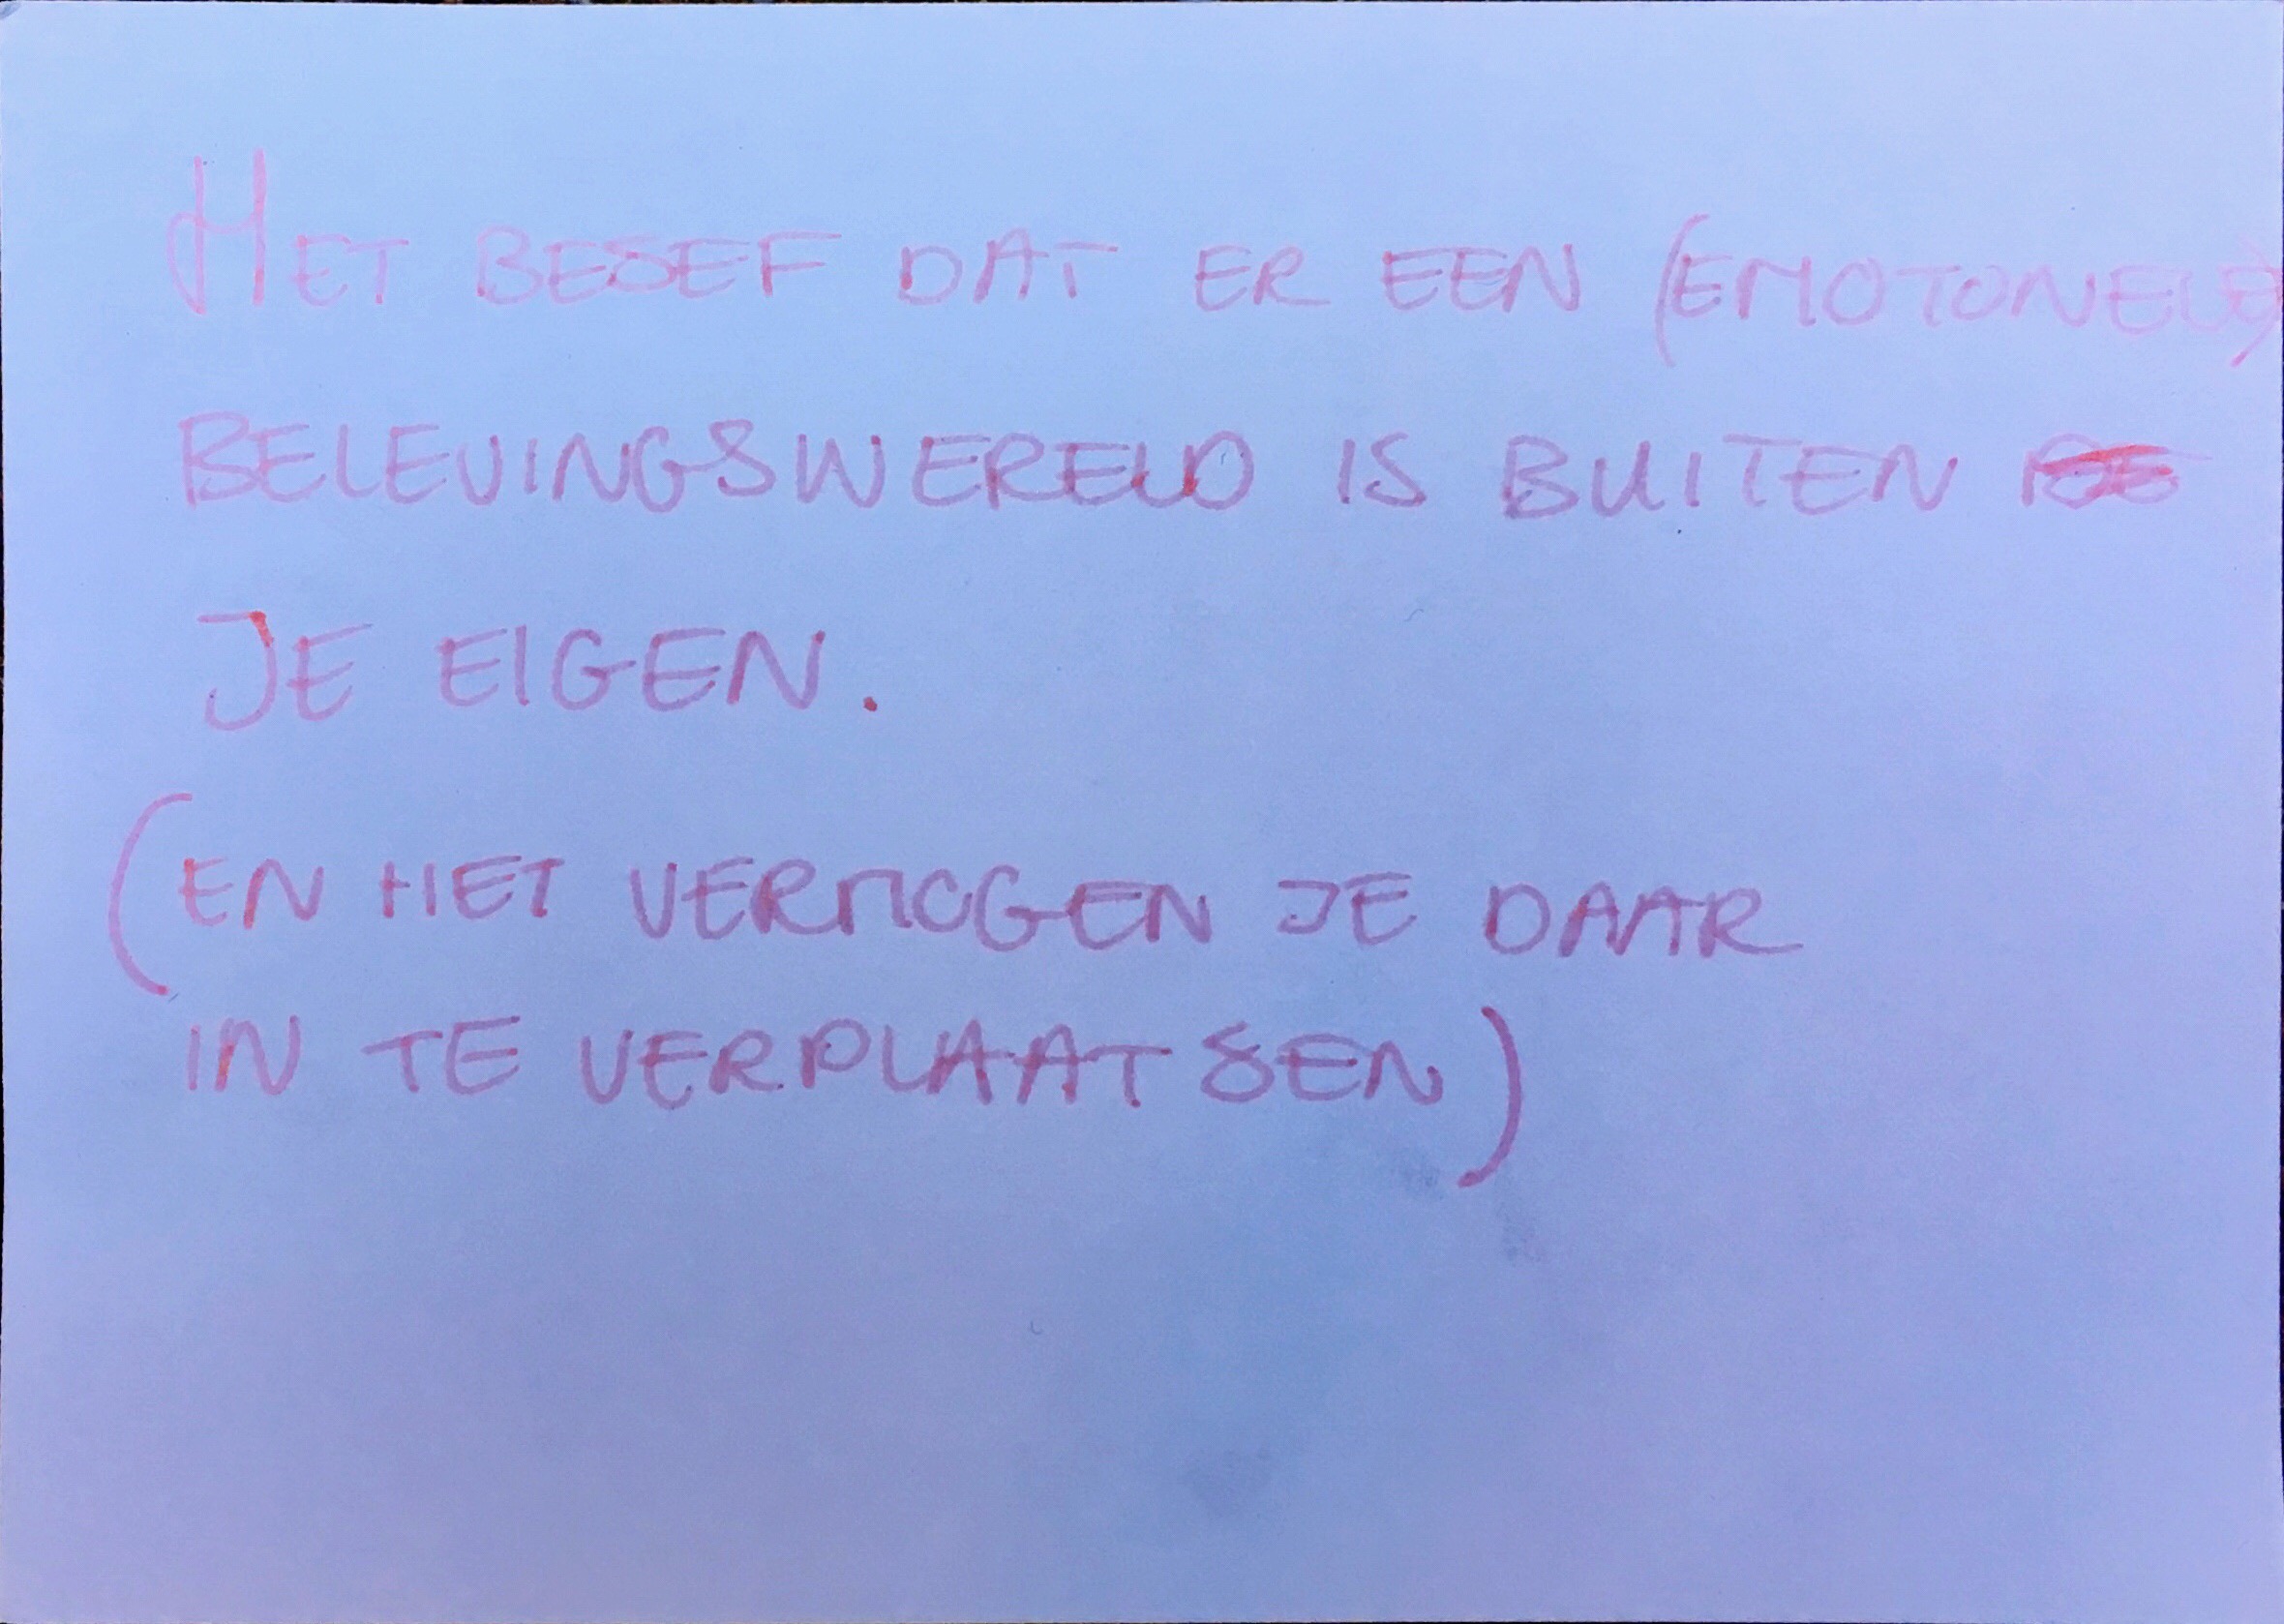 HET BESEF DAT ER EEN (EMOTONELE)
BELEVINGSWERELD IS BUITEN
JE EIGEN.
(EN HET VERMOGEN JE DAAR
IN TE VERPLAATSEN)